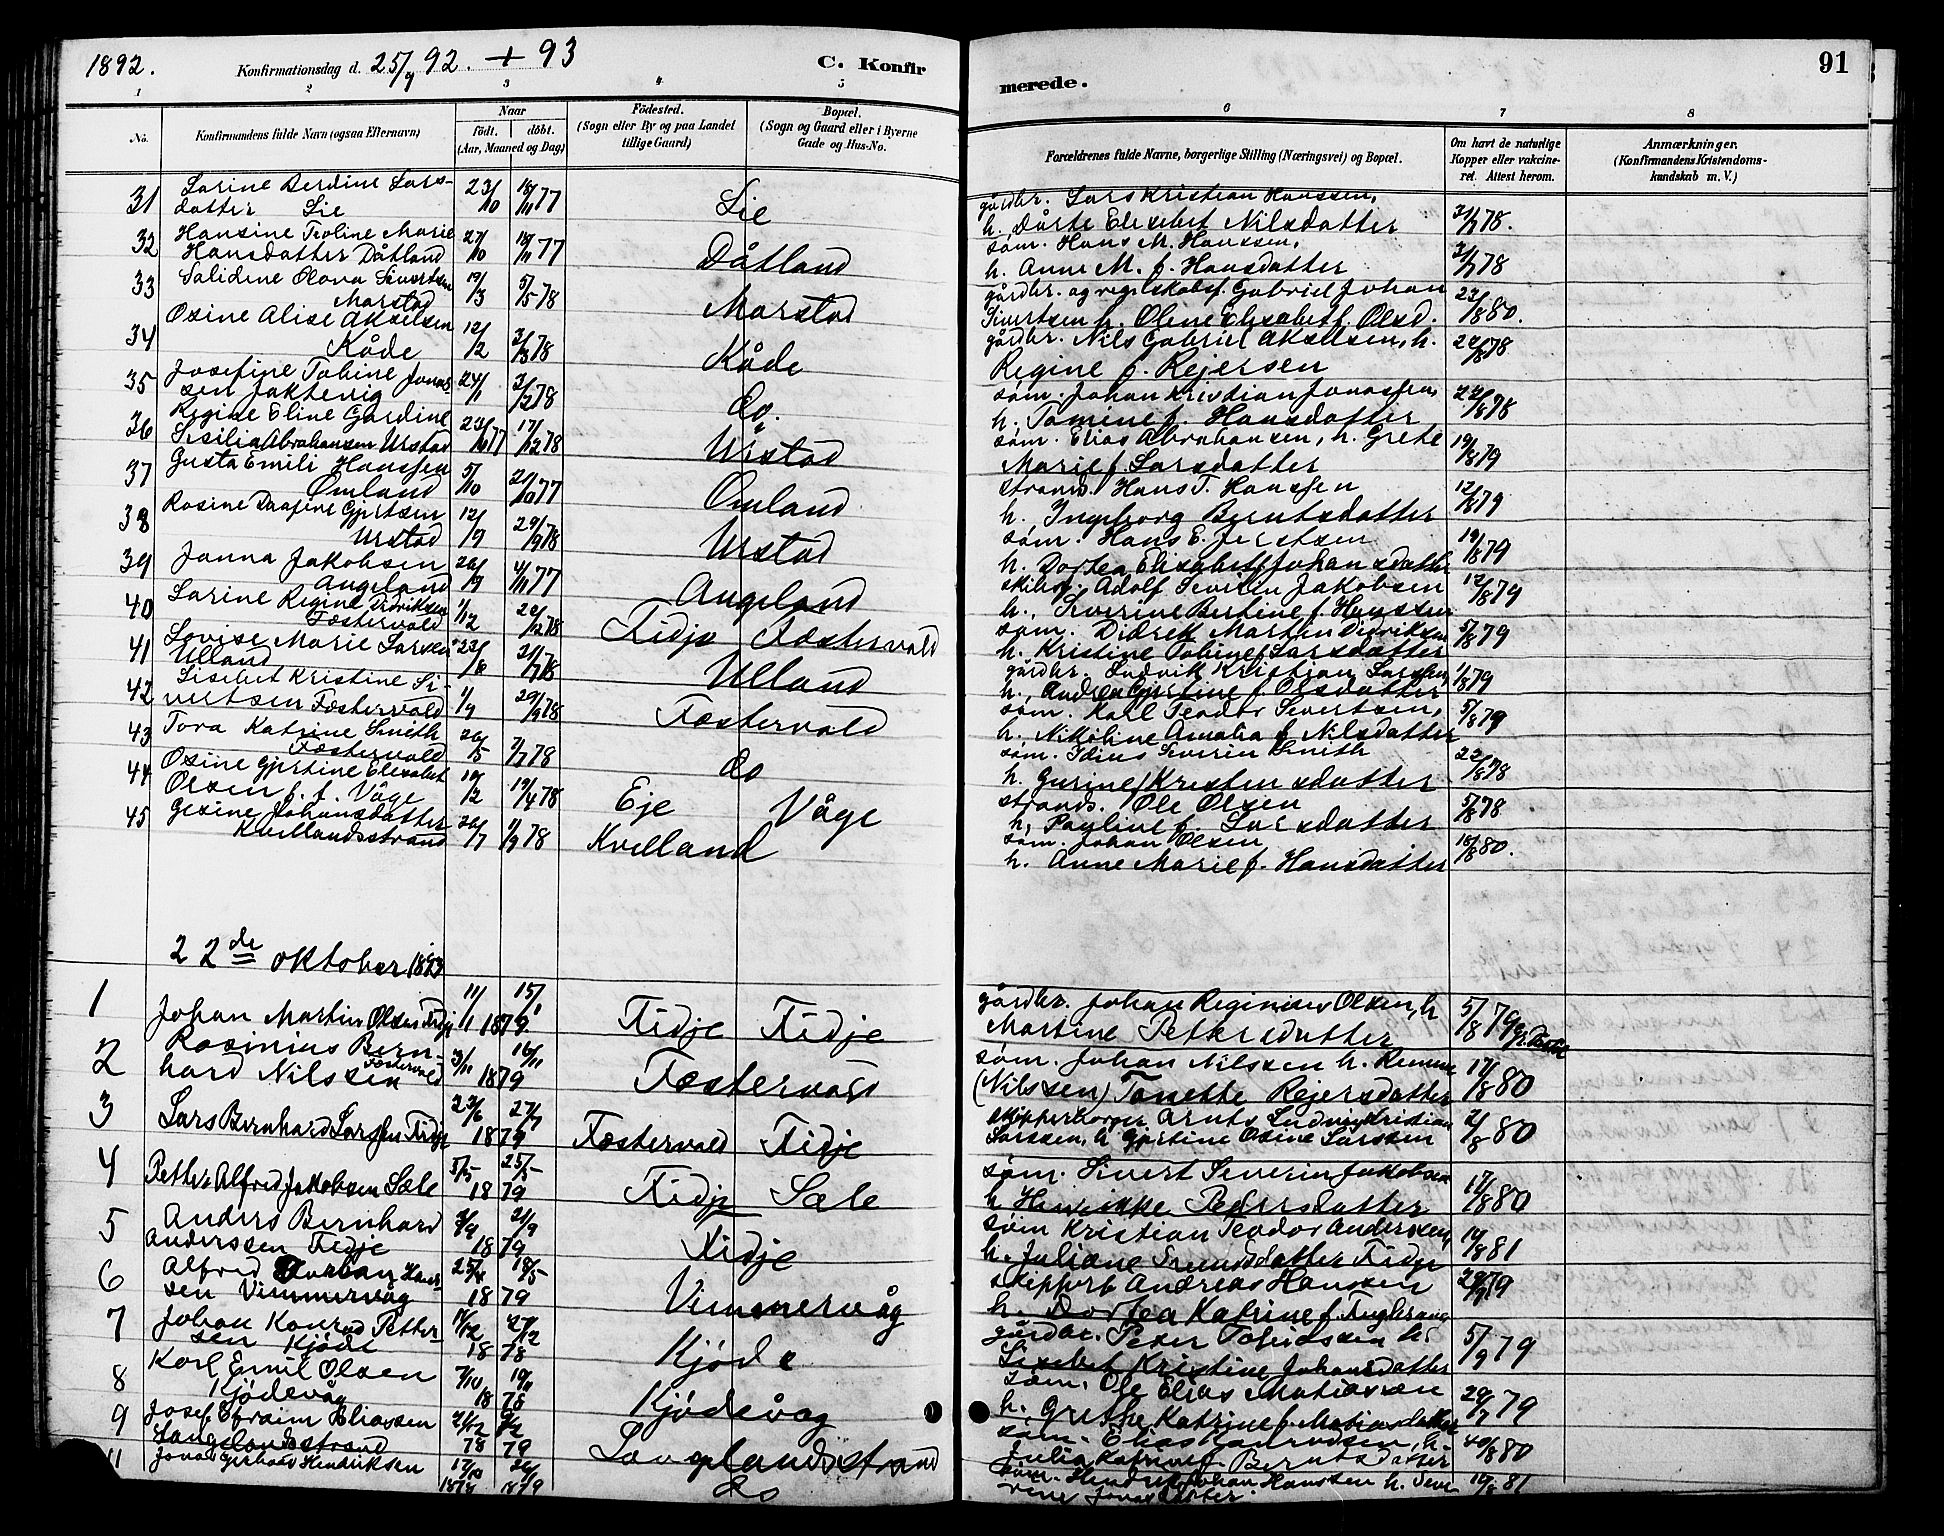 1892.
Konfirmationsdag d. 25/9 92. + 93
C. Konfir
merede.
91
1
2
3
4
5
6
7
8
No.
Konfirmandens fulde Navn (ogsaa Efternavn)
Naar
födt. döbt.
(Aar, Maaned og Dag)
Födested.
(Sogn eller By og paa Landet
tillige Gaard)
Bopæl.
(Sogn og Gaard eller i Byerne
Gade og Hus-No.
Forældrenes fulde Navne, borgerlige Stilling (Næringsvei) og Bopæl.
Om havt de naturlige
Kopper eller vakcine-
ret. Attest herom.
Anmærkninger.
(Konfirmandens Kristendoms-
kundskab m. V.)
31 Larine Berdine Lars-
datter Lie 23/10 18/11 77 Lie
gårdbr. Lars Kristian Hanssen,
h. Dårte Elisebet Nilsdatter 78.
32 Hansine Teoline Marie
Hansdatter Dåtland 27/10 18/11 77 Dåtland
søm. Hans M. Hanssen,
h. Anne M. f. Hansdatter 78
33 Salidine Olova Sivertsen
Marstad 19/3 5/5 78 Marstad
gårdbr. og Gabriel Johan
Sivertsen h. Olene Elisabet f. Olsd. 23/8 80.
34 Osine Alise Akselsen
Kåde 12/2 3/3 78 Kåde
gårdbr. Nils Gabriel Akselsen, h.
Regine f. Rejersen 22/8 78
35 Josefine Tobine Jonas-
sen Jaktevig 24/1 3/2 78 do.
søm. Johan Kristian Jonassen
h. Tomine f. Hansdatter 22/8 78
36 Regine Eline Gardine
Sisilia Abrahamsen Urstad 23/10 77 17/12 78 Urstad
søm. Elias Abrahamsen, h. Grete
Marie f. Larsdatter 19/8 79
37 Gusta Emili Hanssen
Omland 5/10 21/10 77 Omland
strands. Hans T. Hanssen
h. Ingeborg Berntsdatter 12/8 79
38 Rosine Gjertsen
Urstad 12/9 29/9 78 Urstad
søm. Hans E. Jertsen
h. Dortea Elisabet f. Johansdatter 19/8 79
39 Janna Jakobsen
Angeland 26/9 4/11 77 Angeland
Adolf Severin Jakobsen
h. Severine Bertine f. Hanssen 12/8 79
40 Larine Regine Didriksen
Fæstervold 1/12 22/12 78 Fidje Fæstervold
søm. Didrek Martin Didriksen
h. Kristine Tobine f. Larsdatter 5/8 79
41 Lovise Marie Larsen
Ulland Ulland
gårdbr. Ludvik Kristian Larssen
h. Andrea Gjertine f. Olsdatter 1/8 79
42 Lisebet Kristine Si-
vertsen Fæstervold 1/9 29/9 78 Fæstervold
søm. Karl Teodor Sivertsen,
h. Nikoline Amalia f. Nilsdatter 5/8 79
43 Tora Katrine Smith
Fæstervold 26/5 7/7 78 do
søm. Severin Smith
h. Gurine Kristensdatter 22/8 78
44 Osine Gjertine Elisabet
Olsen Våge 10/2 19/4 78 Eje Våge
strands. Ole Olsen
h. Pauline f. Larsdatter 5/8 78
45 Gesine Johansdatter
Kvellandsstrand 26/7 1/9 78 Kvelland
søm. Johan Olsen
h. Anne Marie f. Hansdatter 18/8 80.
22de oktober 1893
1 Johan Martin Olsen Fidje 11/1 15/1 1879 Fidje Fidje
gårdbr. Johan Reginius Olsen, h
Martine Pettersdatter 5/8 79
2 Rosinius Bern-
hard Nilssen Fæstervold 3/11 16/11 1879 Fæstervold
søm. Johan Nilssen h.
(Nilssen) Tonette Rejersdatter 17/8 80
3 Lars Bernhard Larssen Fidje 23/6 27/7 1879 Fæstervold Fidje
Arnts Ludvig Kristian
Larssen, h. Gjertine Osine Larssen 2/8 80
4 Petter Alfred Jakobsen Sæle 5/5 25/5 1879 Fidje Sæle
søm. Sivert Severin Jakobsen
h Henrikke Pedersdatter 17/8 80
5 Anders Bernhard
Anderssen Fidje 2/9 21/9 1879 Fidje
søm Kristian Teodor Anderssen,
h. Juliane Fidje 19/8 81
6 Alfred Johan Hans-
sen Vimmervåg 25/4 18/5 1879 Vimmervåg
skipperb Andreas Hanssen
h. Dortea Katrine f. 79
7 Johan Konrad Petter-
sen Kjöde 27/12 1878 Kjöde
gårdbr. Peter h.
Lisebet Kristine Johansdatter 5/9 79
8 Karl Emil Olsen
Kjödevåg 7/10 19/11 1878 Kjödevåg
søm. Ole Elias Matiassen
h. Grethe Katrine f. Matiasdatter 29/7 79
9 Josef Efraim Eliassen
Langelandsstrand 78 79 Langelandsstrand
søm. Elias h.
Julia Katrine f. Berntsdatter 80
11 Jonas Gerhard Hendriksen 17/10 1878 1879 do
søm. Hendrik Johan Hanssen h. Seve-
rine Jonasdatter. 19/8 81